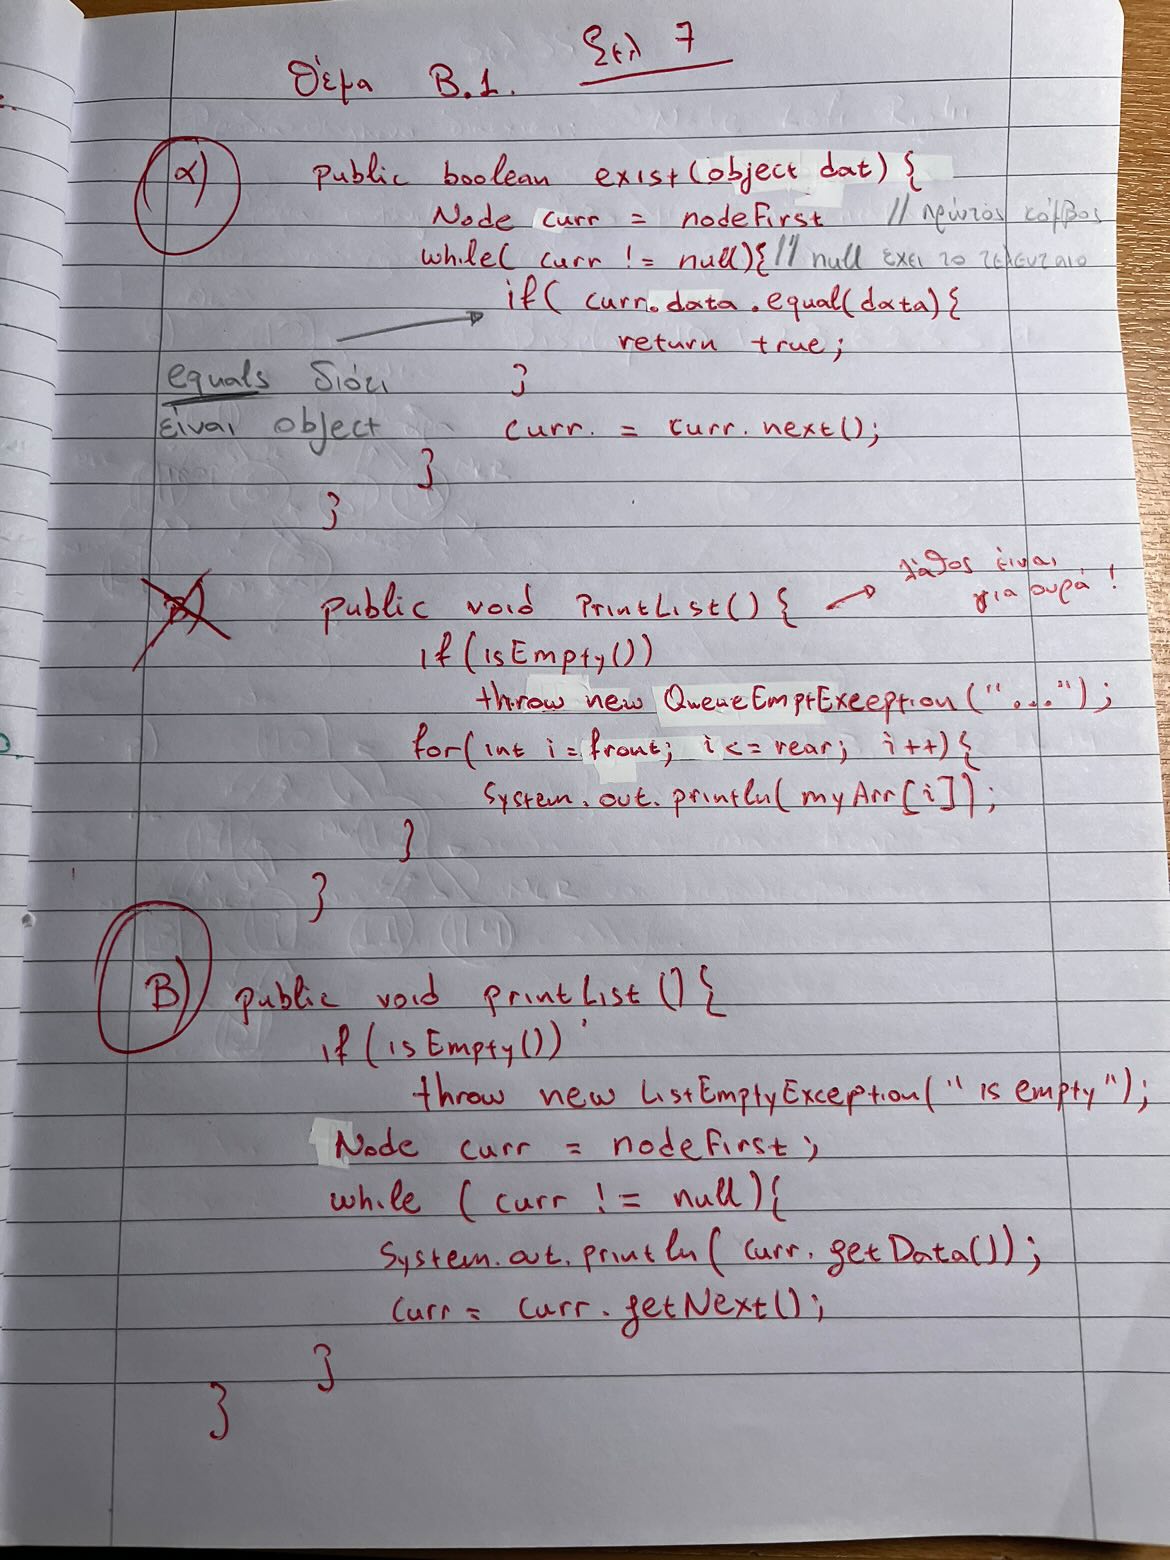 Θέμα Β.1. Σελ 7
α) public boolean exist(object dat) {
Node curr = nodeFirst // πρώτος κόμβος
while( curr != null){ // null έχει το τελευταίο
if( curr.data.equal(data){
return true;
equals διότι }
είναι object curr. = curr.next();
}
}
Β) public void PrintList() { → λάθος είναι
για ουρά !
if (isEmpty())
throw new QueueEmptExeeption("...");
for( int i = front; i <= rear; i++) {
System.out.println( myArr[i]);
}
}
Β) public void printList () {
if (isEmpty())
throw new ListEmptyException(" is empty");
Node curr = nodeFirst;
while ( curr != null){
System.out.println( curr.getData());
curr = curr.getNext();
}
}